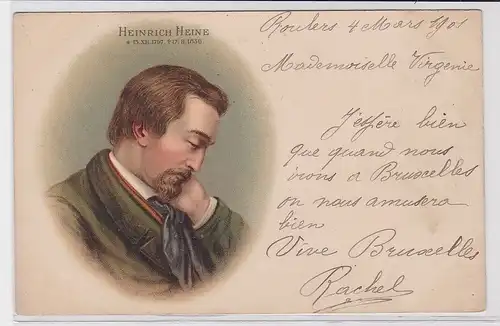 HEINRICH HEINE
* 13. XII. 1797. † 17. II. 1856.
Roulers 4 Mars 1901
Mademoiselle Virgenie
J'espère bien
que quand nous
irons a Bruxcelles
on nous amusera
bien
Vive Bruxcelles
Rachel